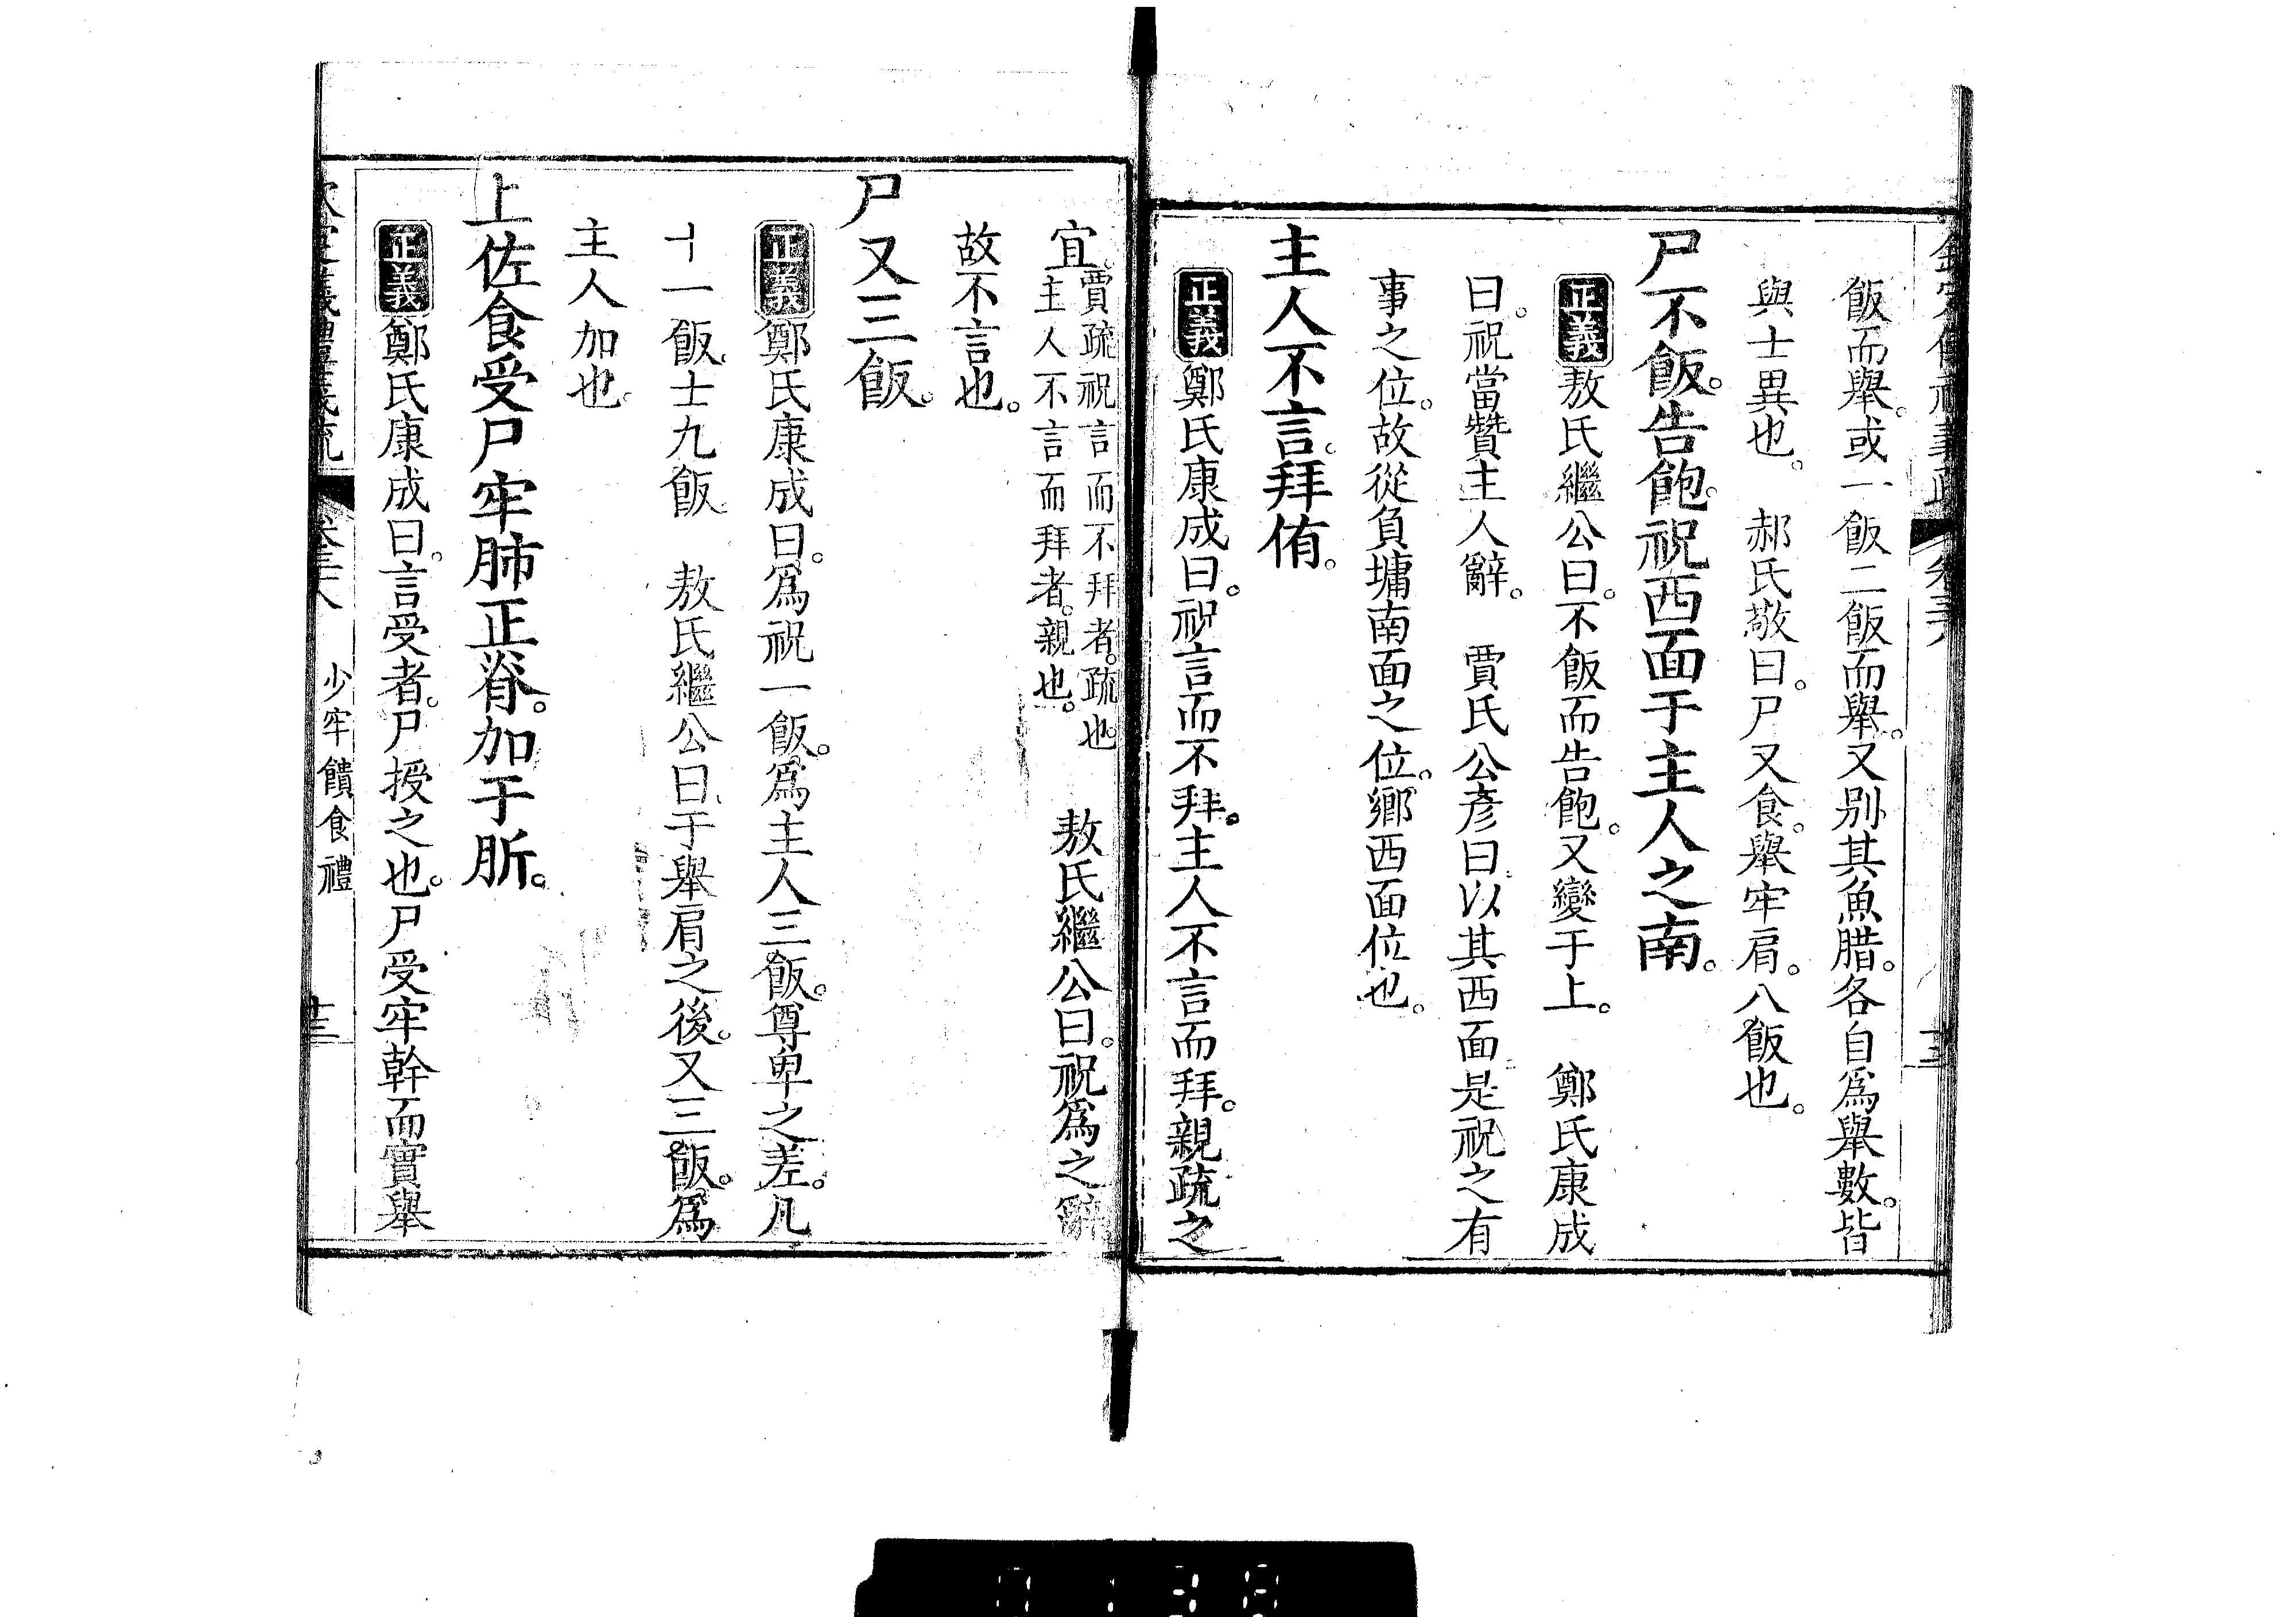 飯而舉。或一飯二飯而舉。又別其魚腊。各自為舉數。皆
與士異也。　郝氏敬曰。尸又食。舉牢肩。八飯也。
尸不飯。告飽。祝西面于主人之南。
正義敖氏繼公曰。不飯而告飽。又變于上。　鄭氏康成
曰。祝當贊主人辭。　賈氏公彥曰。以其西面是祝之有
事之位。故從負墉南面之位。鄉西面位也。
主人不言。拜侑。
正義鄭氏康成曰。祝言而不拜。主人不言而拜。親疏之
宜。賈疏祝言而不拜者。疏也。主人不言而拜者。親也。　敖氏繼公曰。祝為之辭
故不言也。
尸又三飯。
正義鄭氏康成曰。為祝一飯。為主人三飯。尊卑之差。凡
十一飯。士九飯　敖氏繼公曰。于舉肩之後。又三飯。為
主人加也。
上佐食受尸牢肺正脊。加于肵。
正義鄭氏康成曰。言受者。尸授之也。尸受牢幹而實舉
少牢饋食禮
十三